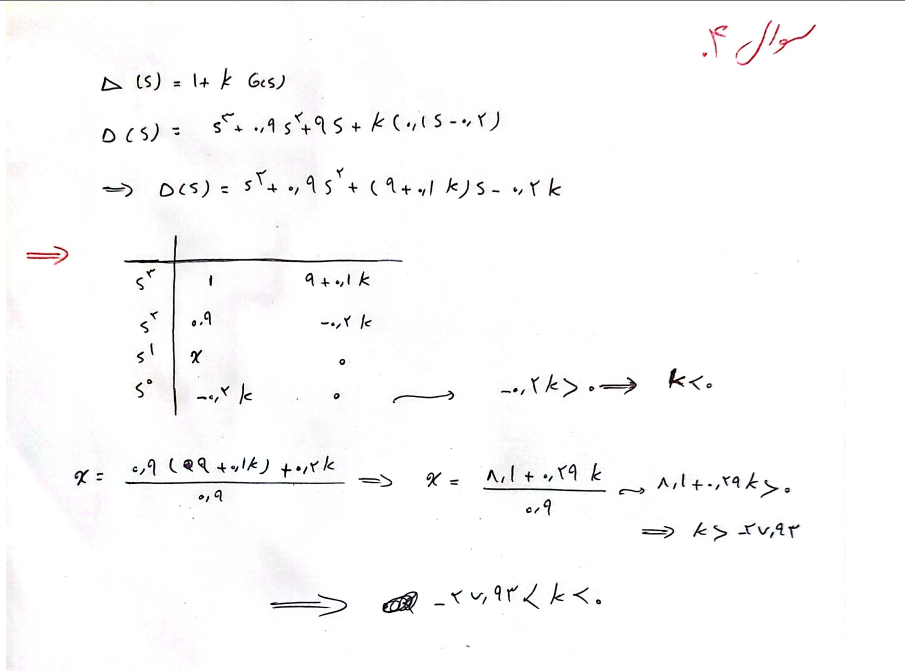 سوال ۴.
Δ (s) = 1 + k G(s)
D(s) = s^۳ + ۰,۹ s^۲ + ۹ s + k (۰,۱ s - ۰,۲)
⇒ D(s) = s^۳ + ۰,۹ s^۲ + (۹ + ۰,۱ k) s - ۰,۲ k
⇒
s^۳ | ۱ ۹ + ۰,۱ k
s^۲ | ۰,۹ -۰,۲ k
s^۱ | x ۰
s^۰ | -۰,۲ k ۰ ⟶ -۰,۲ k > ۰ ⇒ k < ۰
x = (۰,۹ (۹ + ۰,۱ k) + ۰,۲ k) / ۰,۹ ⇒ x = (۸,۱ + ۰,۲۹ k) / ۰,۹ ⤳ ۸,۱ + ۰,۲۹ k > ۰
⇒ k > -۲۷,۹۳
⇒ -۲۷,۹۳ < k < ۰